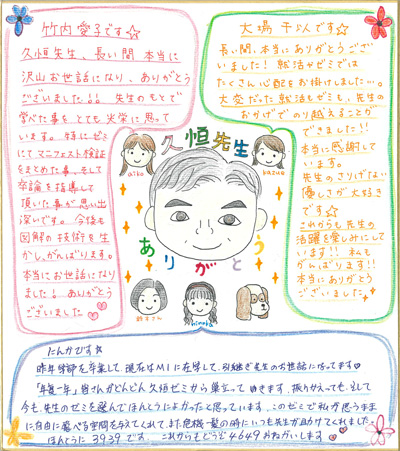 竹内愛子です☆
久恒先生、長い間 本当に
沢山お世話になり、ありがとう
ございました!! 先生のもとで
学べた事をとても光栄に思って
います。特にゼミ
にてマニフェスト検証
をまとめた事、そして
卒論を指導して
頂いた事が思い出
深いです。今後も
図解の技術を生
かし、がんばります。
本当にお世話になり
ました! ありがとう
ございました
大場 千以です☆
長い間、本当にありがとうござ
いました! 就活やゼミでは
たくさん心配をお掛けしました…。
大変だった就活もゼミも、先生の
おかげでのり越えることが
できました!!
本当に感謝して
います。
先生のさりげない
優しさが大好き
です☆
これからも先生の
活躍を楽しみにして
います!! 私も
がんばります!!
本当にありがとう
ございました!
久恒先生
aiko
kazue
ありがとう
鈴すさん
ninoka
にんかです☆
昨年学部を卒業して、現在はM1に在学して、引続き先生のお世話になってます♡
「年一年」皆さんがどんどん久恒ゼミから巣立ってゆきます。振りかえっても、そして
今も、先生のゼミを選んでほんとうによかったと思っています。このゼミで私が思うまま
に自由に遊べる空間を与えてくれて、また危機一髪の時にいつも先生が助けてくれました。
ほんとうに3939です。これからもどうぞ4649おねがいします